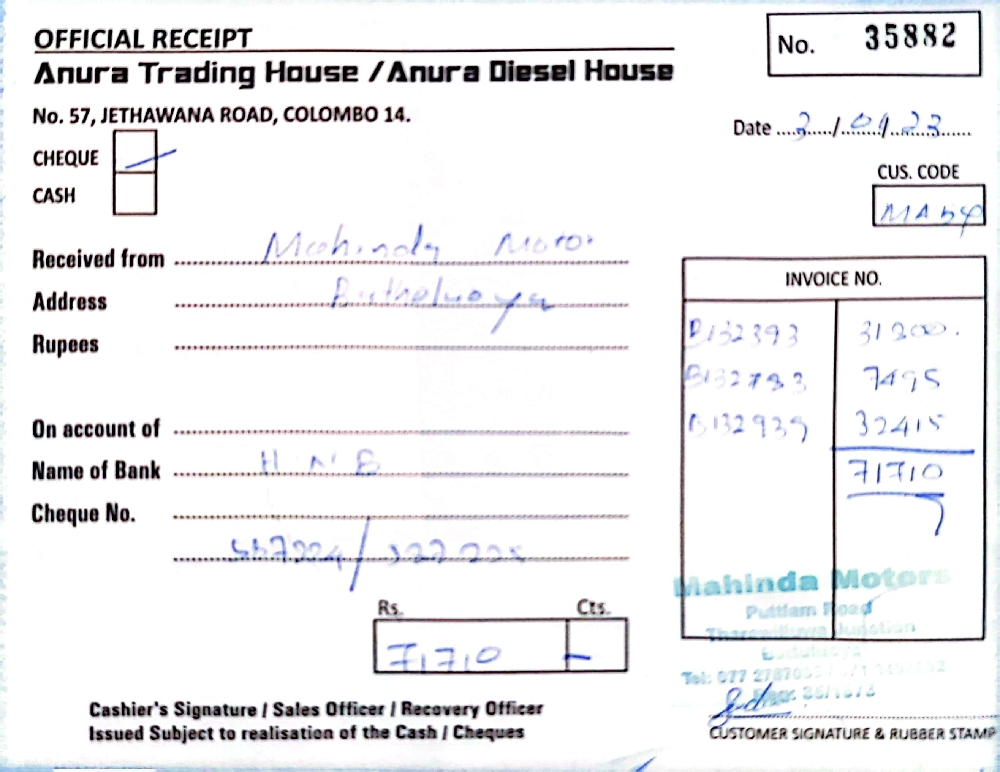 OFFICIAL RECEIPT
No. 35882
Anura Trading House / Anura Diesel House
No. 57, JETHAWANA ROAD, COLOMBO 14.
Date 3/01/23
CHEQUE
CASH
CUS. CODE
Received from Mahinda Motor
Address
Rupees
On account of
Name of Bank H N B
Cheque No.
INVOICE NO.
B132393 31200.
B132793 7495
B132939 32415
71710
Rs. Cts.
71710 –
Mahinda Motors
Puttlam Road
Junction
Tel: 077
Cashier's Signature / Sales Officer / Recovery Officer
Issued Subject to realisation of the Cash / Cheques
CUSTOMER SIGNATURE & RUBBER STAMP